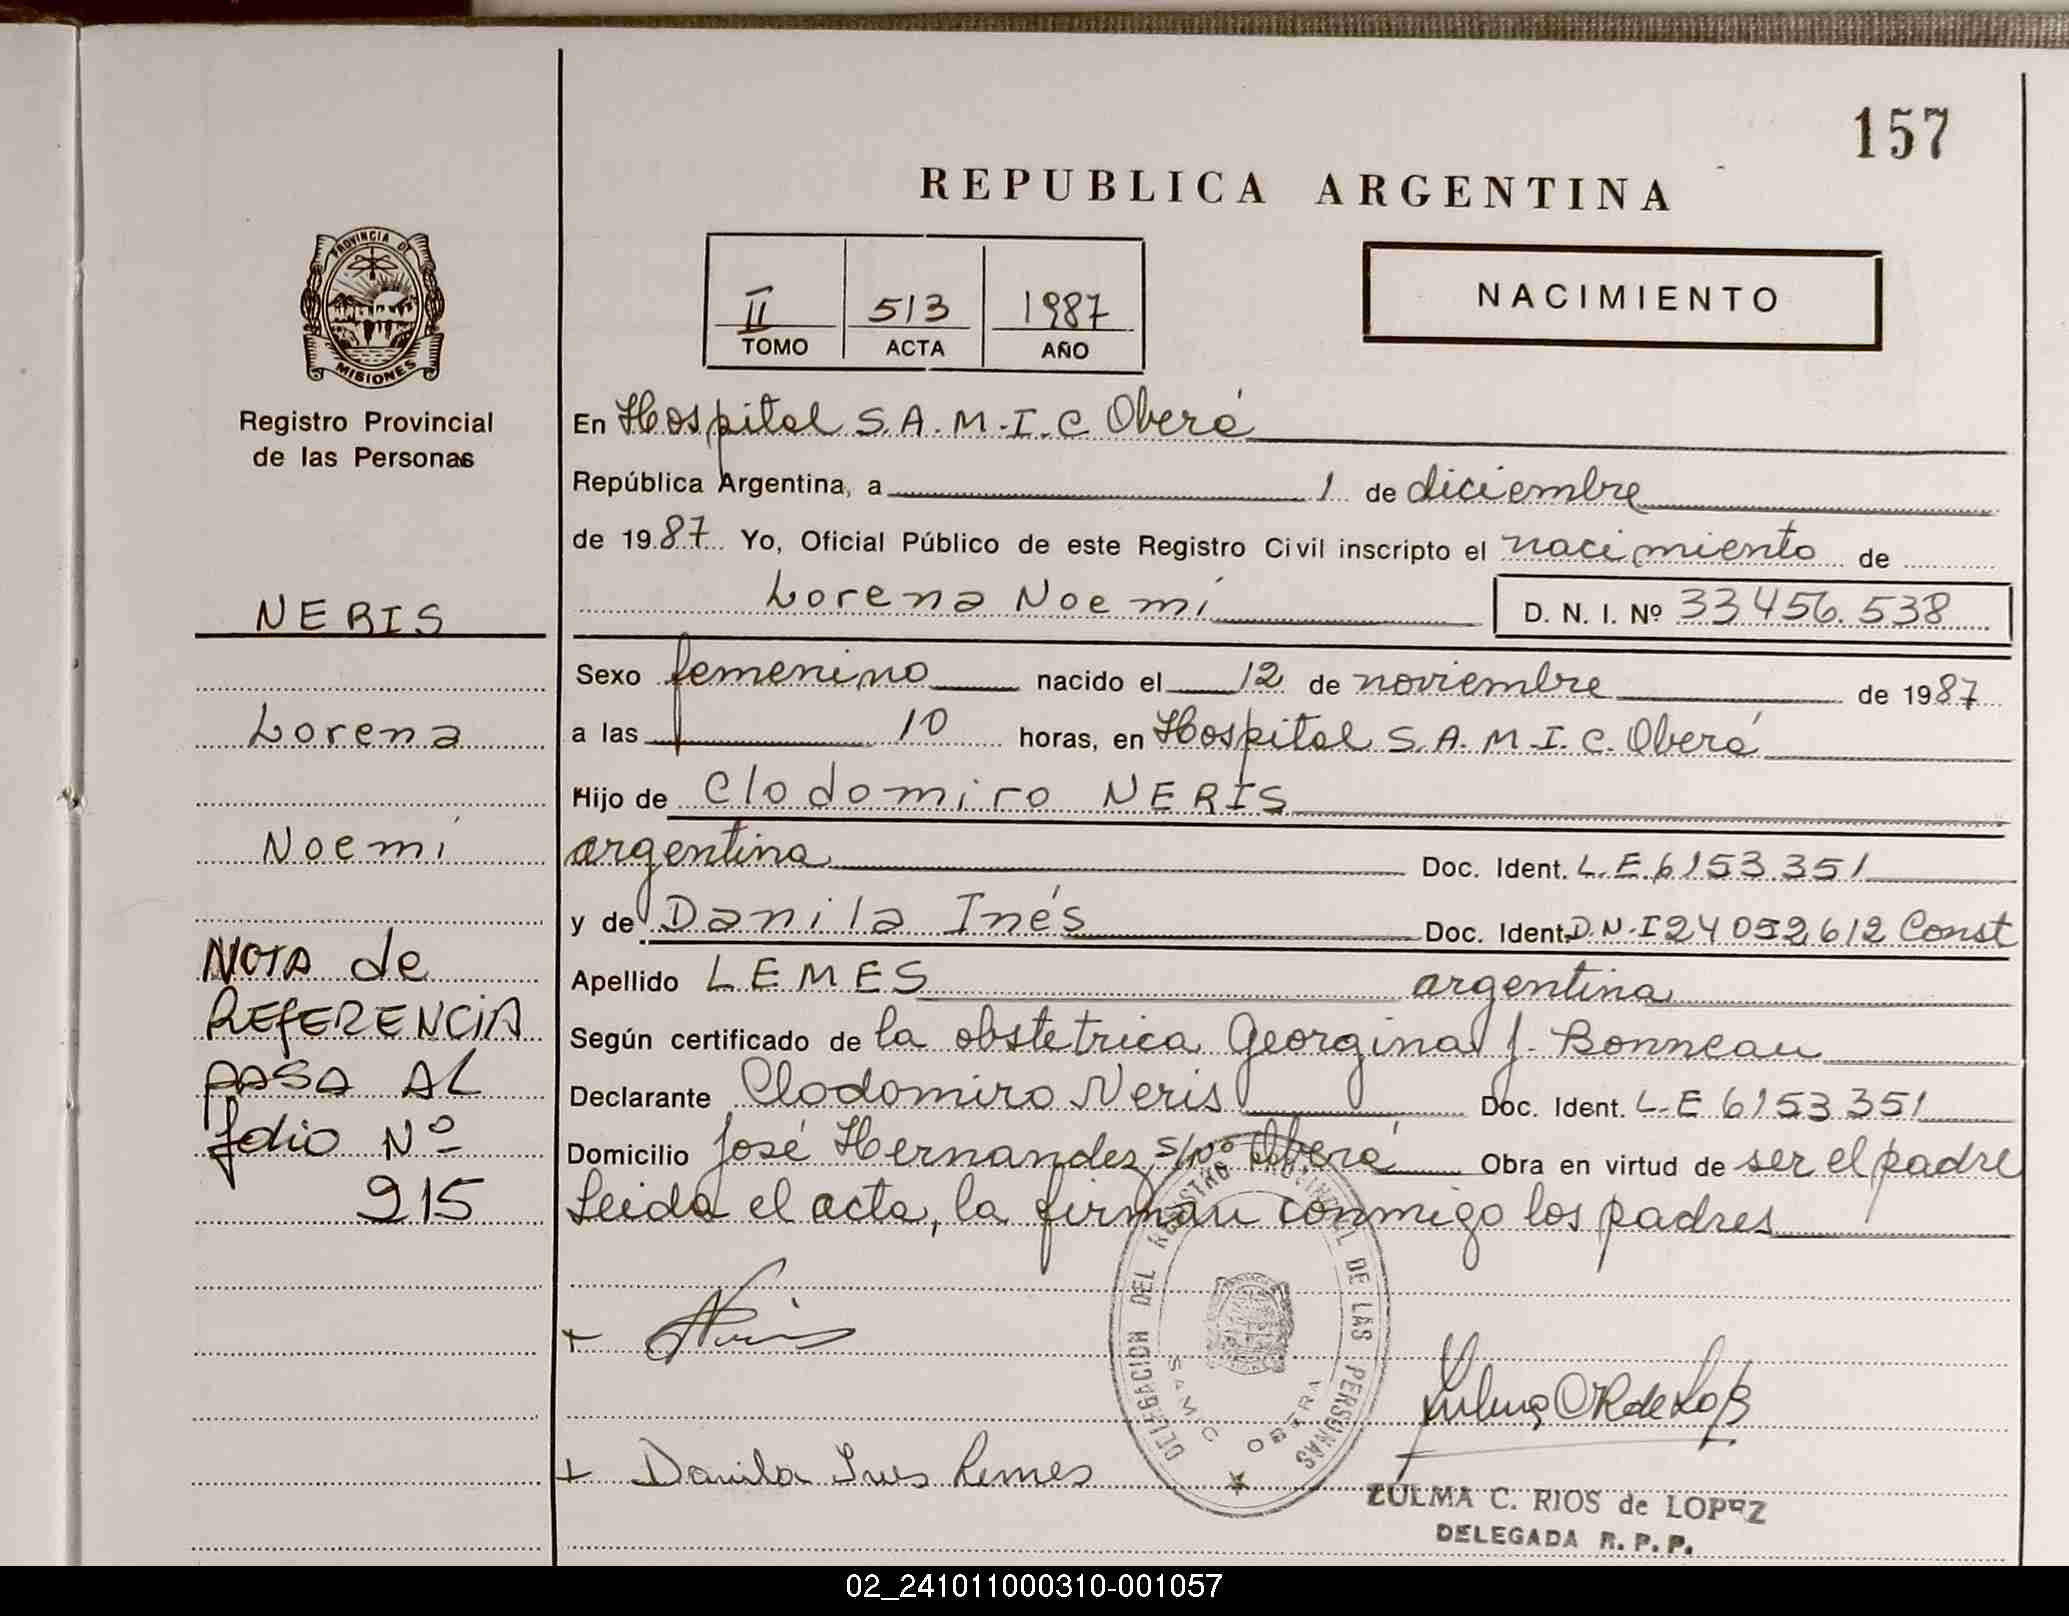 157
REPUBLICA ARGENTINA
PROVINCIA DE
MISIONES
Registro Provincial
de las Personas
II 513 1987
TOMO ACTA AÑO
NACIMIENTO
En Hospital S.A.M.I.C Oberá
República Argentina, a 1 de diciembre
de 1987 Yo, Oficial Público de este Registro Civil inscripto el nacimiento de
Lorena Noemí D. N. I. Nº 33456.538
NERIS
Sexo femenino nacido el 12 de noviembre de 1987
Lorena
a las 10 horas, en Hospital S.A.M.I.C. Oberá
Hijo de Clodomiro NERIS
Noemí
argentina Doc. Ident. L.E.6153.351
y de Danila Inés Doc. Ident. D.N.I 24052612 Const
NOTA de
Apellido LEMES argentina
REFERENCIA
Según certificado de la obstetrica Georgina J. Bonneau
PASA AL
Declarante Clodomiro Neris Doc. Ident. L-E 6153351
folio Nº
Domicilio José Hernandez s/nº Oberá Obra en virtud de ser el padre
915
Leida el acta, la firman conmigo los padres
+ Neris
DELEGACION DEL REGISTRO PROVINCIAL DE LAS PERSONAS
SAMIC OBERA
+ Danila Ines Lemes
ZULMA C. RIOS de LOPEZ
DELEGADA R. P. P.
02_241011000310-001057